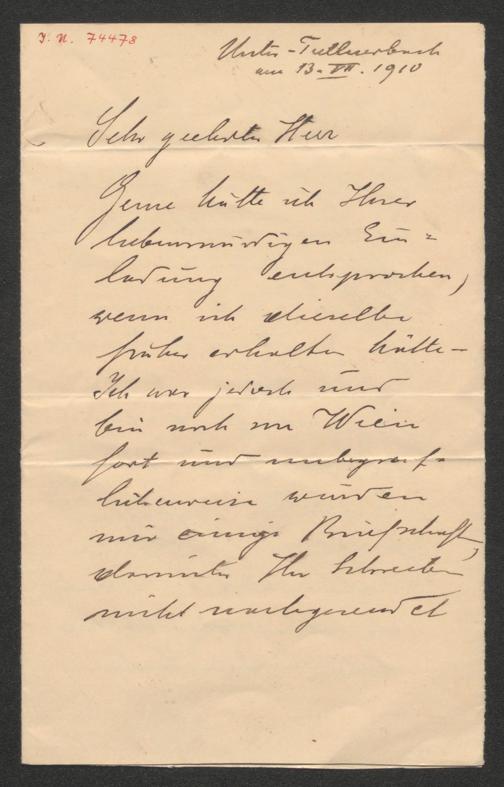 J. N. 74478
Unter-Tullnerbach
am 13. VII. 1910
Sehr geehrter Herr
Gerne hätte ich Ihrer
liebenswürdigen Ein=
ladung entsprochen,
wenn ich dieselbe
früher erhalten hätte –
Ich war jedoch und
bin noch von Wien
fort und unbegreif-
licherweise wurden
mir einige Briefschaften,
darunter Ihr Schreiben
nicht nachgesendet